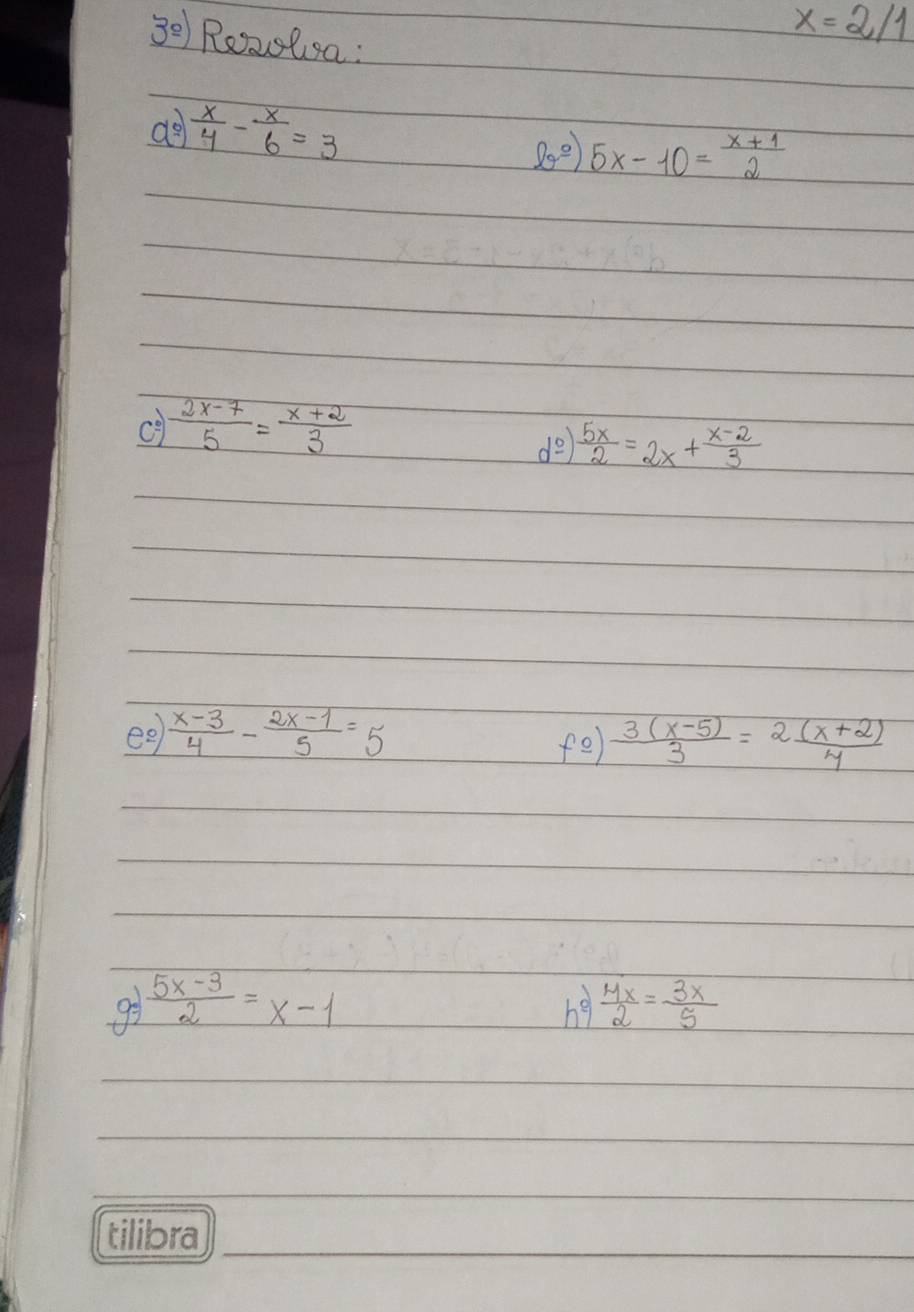 x = 2/1
3º) Resolva:
aº) x/4 - x/6 = 3
bº) 5x - 10 = (x + 1)/2
cº) (2x - 7)/5 = (x + 2)/3
dº) 5x/2 = 2x + (x - 2)/3
eº) (x - 3)/4 - (2x - 1)/5 = 5
fº) 3(x - 5)/3 = 2(x + 2)/4
gº) (5x - 3)/2 = x - 1
hº) 4x/2 = 3x/5
tilibra